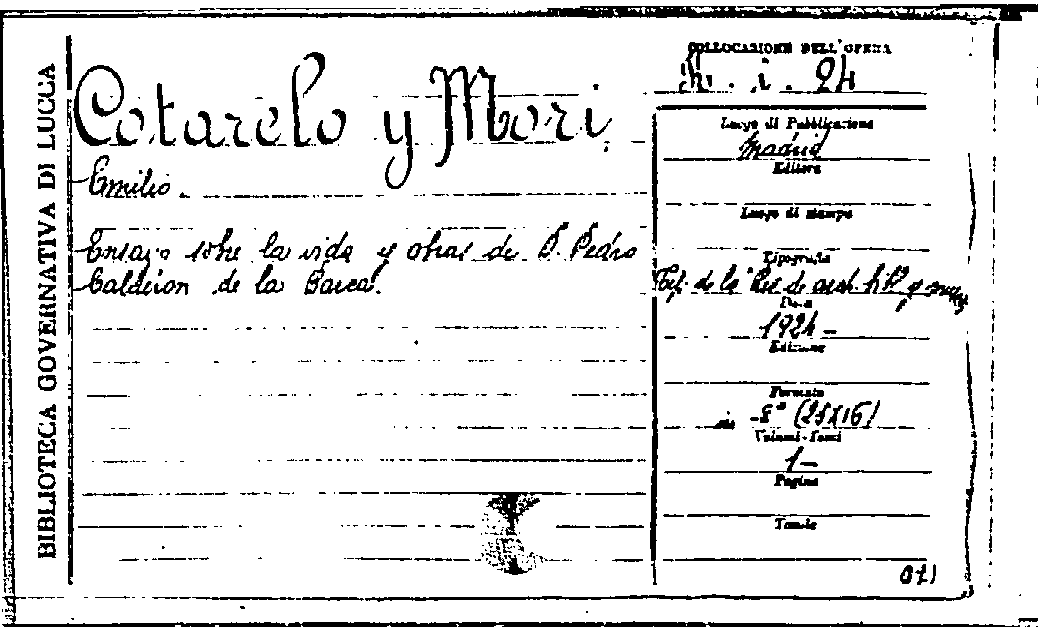 BIBLIOTECA GOVERNATIVA DI LUCCA
Cotarelo y Mori,
Emilio.
Ensayo sobre la vida y obras de D. Pedro
Calderon de la Barca.
COLLOCAZIONE DELL'OPERA
i. 24
Luogo di Pubblicazione
Madrid
Editore
Luogo di stampa
Tipografia
Tip. de la Rev. de arch. bib. y mus.
Data
1924 -
Edizione
Formato
in -8° (25X16)
Volumi-Tomi
1-
Pagine
Tavole